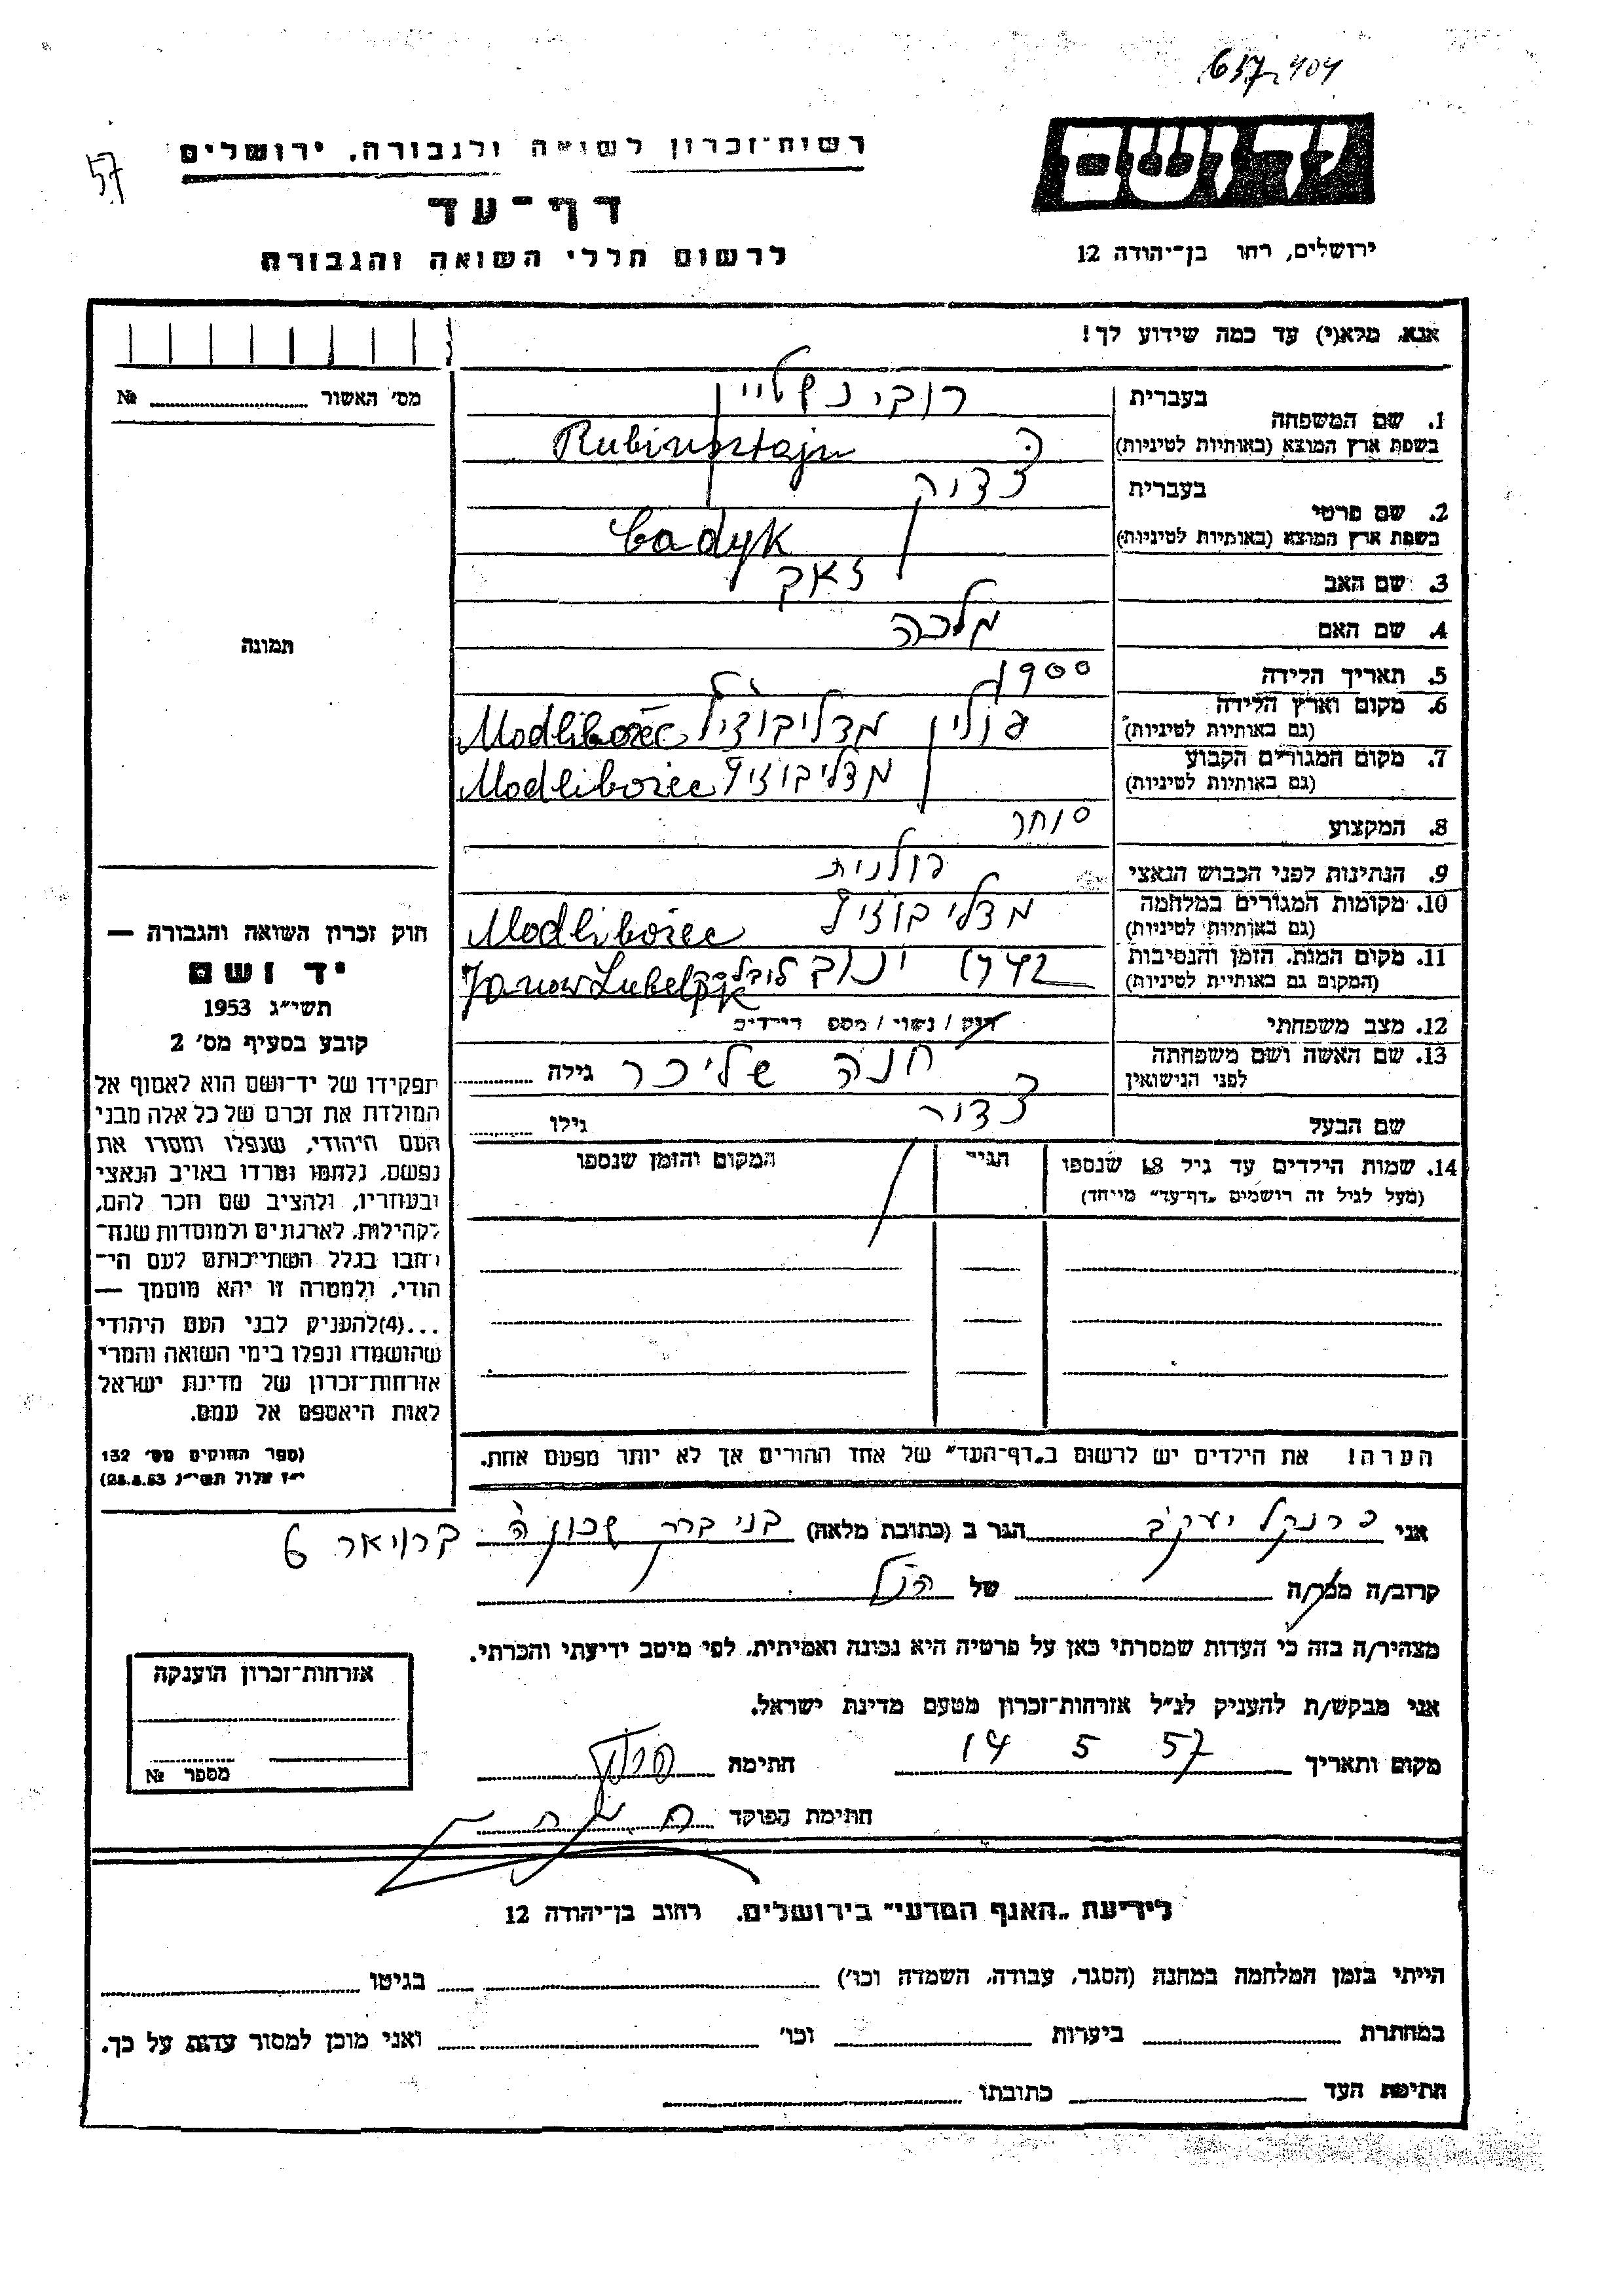 637 404
57
יד ושם
רשות־זכרון לשואה ולגבורה, ירושלים
דף־עד
לרשום חללי השואה והגבורה
ירושלים, רחו בן־יהודה 12
אנא, מלא(י) עד כמה שידוע לך!
מס׳ האשור № 
1. שם המשפחה בעברית רובינשטיין
בשפת ארץ המוצא (באותיות לטיניות) Rubinsztajn
2. שם פרטי בעברית צדוק
בשפת ארץ המוצא (באותיות לטיניות) Cadyk
3. שם האב זאק
4. שם האם מלכה
5. תאריך הלידה 1900
6. מקום וארץ הלידה (גם באותיות לטיניות) פולין מדליבוזיץ Modliborzec
7. מקום המגורים הקבוע (גם באותיות לטיניות) מדליבוזיץ Modliborzec
8. המקצוע סוחר
9. הנתינות לפני הכבוש הנאצי פולנית
10. מקומות המגורים במלחמה (גם באותיות לטיניות) מדליבוזיץ Modliborzec
11. מקום המות, הזמן והנסיבות (המקום גם באותיות לטיניות) 1942 ינוב לובלסק Janow Lubelski
12. מצב משפחתי רווק / נשוי / מספ הילדים
13. שם האשה ושם משפחתה לפני הנישואין חנה שליכר גילה
שם הבעל צדוק גילו
14. שמות הילדים עד גיל 18 שנספו
(מעל לגיל זה רושמים „דף־עד” מייחד)
הגיל
המקום והזמן שנספו
הערה! את הילדים יש לרשום ב„דף־העד” של אחד ההורים אך לא יותר מפעם אחת.
תמונה
חוק זכרון השואה והגבורה —
יד ושם
תשי״ג 1953
קובע בסעיף מס׳ 2
תפקידו של יד־ושם הוא לאסוף אל
המולדת את זכרם של כל אלה מבני
העם היהודי, שנפלו ומסרו את
נפשם, נלחמו ומרדו באויב הנאצי
ובעוזריו, ולהציב שם וזכר להם,
לקהילות, לארגונים ולמוסדות שנח־
רבו בגלל השתייכותם לעם הי־
הודי, ולמטרה זו יהא מוסמך —
...(4)להעניק לבני העם היהודי
שהושמדו ונפלו בימי השואה והמרי
אזרחות־זכרון של מדינת ישראל
לאות היאספם אל עמם.
(ספר החוקים מס׳ 132
י״ז אלול תשי״ג 28.8.53)
אני פרנקל יעקב הגר ב (כתובת מלאה) בני ברק שכון ה ברויאר 6
קרוב/ה מכר/ה של הנ״ל
מצהיר/ה בזה כי העדות שמסרתי כאן על פרטיה היא נכונה ואמיתית, לפי מיטב ידיעתי והכרתי.
אני מבקש/ת להעניק לנ״ל אזרחות־זכרון מטעם מדינת ישראל.
מקום ותאריך 14 5 57 חתימה
חתימת הפוקד
אזרחות־זכרון הוענקה
מספר №
לידיעת „האגף המדעי” בירושלים, רחוב בן־יהודה 12
הייתי בזמן המלחמה במחנה (הסגר, עבודה, השמדה וכו׳) בגיטו
במחתרת ביערות וכו׳ ואני מוכן למסור עדות על כך.
חתימת העד כתובתו